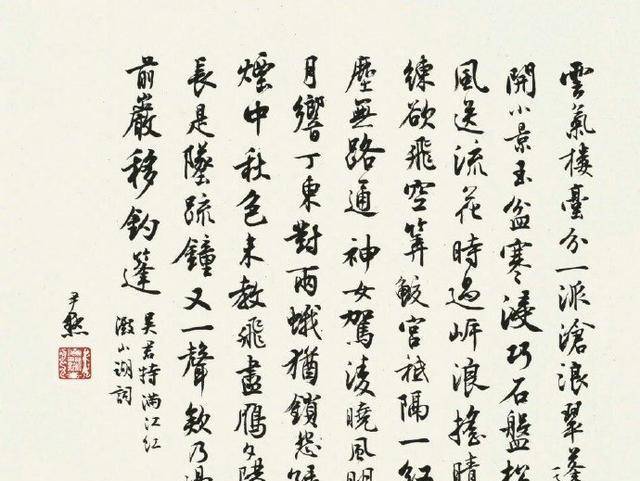 雲氣樓臺分一派滄浪翠蓬
開小景玉盆寒浸巧石盤松
風送流花時過岸浪搖晴
練欲飛空算鮫宮祗隔一紅
塵無路通神女駕淩曉風明
月響丁東對兩蛾猶鎖怨綠
煙中秋色未教飛盡鴈夕陽
長是墜疏鐘又一聲欸乃過
前巖移釣篷
尹默
吳君特滿江紅
澱山湖詞